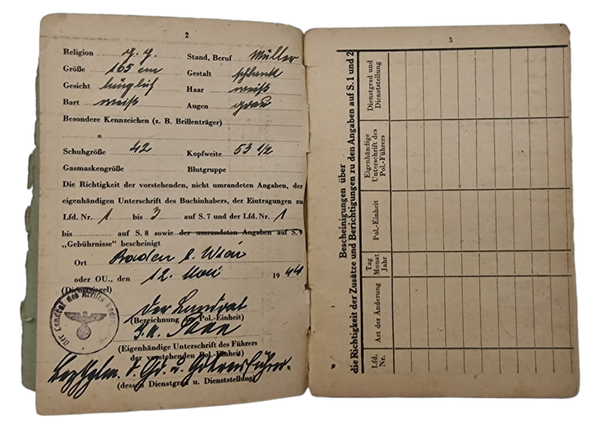 2
Religion g. g. Stand, Beruf Müller
Größe 165 cm Gestalt schlank
Gesicht länglich Haar weiß
Bart weiß Augen grau
Besondere Kennzeichen (z. B. Brillenträger)
Schuhgröße 42 Kopfweite 53 1/2
Gasmaskengröße Blutgruppe
Die Richtigkeit der vorstehenden, nicht umrandeten Angaben, der
eigenhändigen Unterschrift des Buchinhabers, der Eintragungen zu
Lfd. Nr. 1 bis 3 auf S. 7 und der Lfd. Nr. 1
bis auf S. 8 sowie der umrandeten Angaben auf S. 9
„Gebührnisse" bescheinigt
Ort Baden b. Wien
oder OU., den 12. Mai 1944
(Dienstsiegel)
Der Landrat
(Bezeichnung der Pol.-Einheit)
(Eigenhändige Unterschrift des Führers
der vorstehenden Pol.-Einheit)
(dessen Dienstgrad u. Dienststellung)
3
Bescheinigungen über
die Richtigkeit der Zusätze und Berichtigungen zu den Angaben auf S. 1 und 2
Lfd. Nr.
Art der Änderung
Tag Monat Jahr
Pol.-Einheit
Eigenhändige Unterschrift des Pol.-Führers
Dienstgrad und Dienststellung